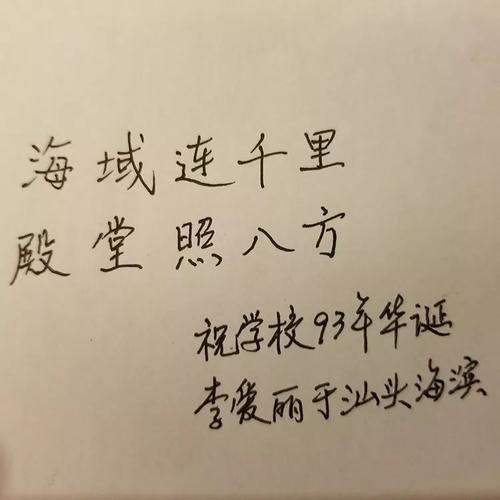 海域连千里
殿堂照八方
祝学校93年华诞
李爱丽于汕头海滨